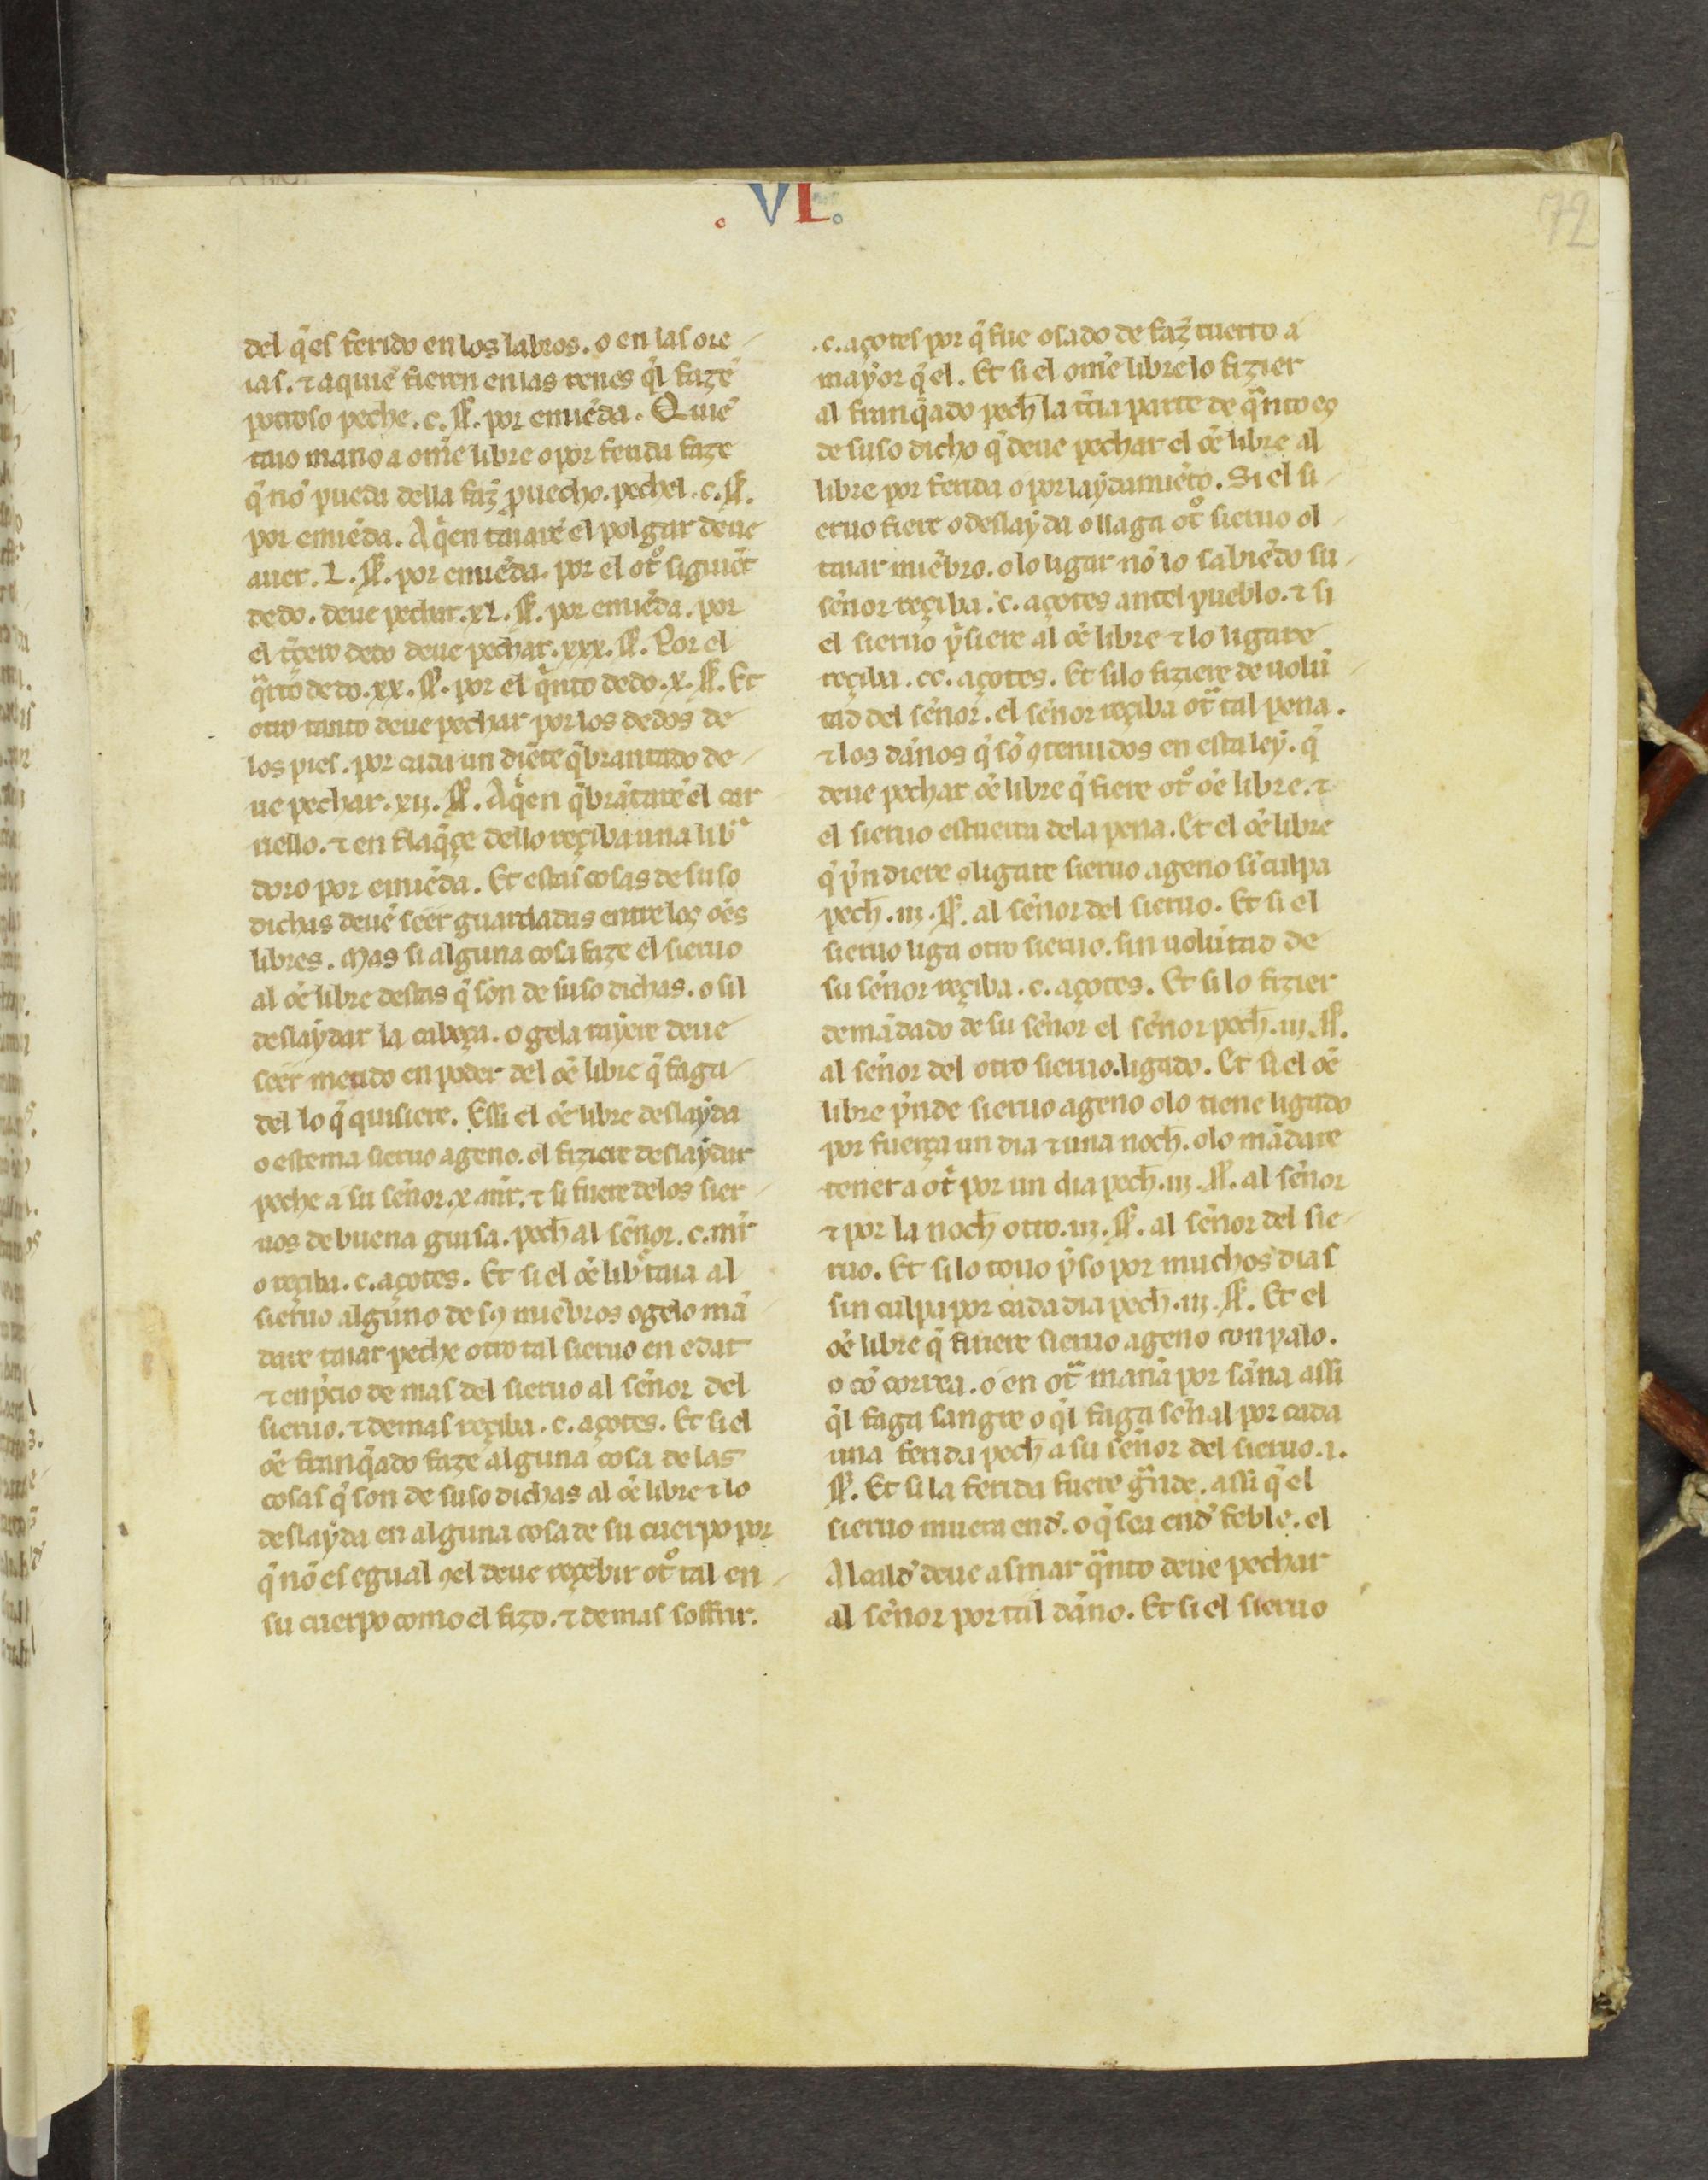 . VI.
72
del q̄ es ferido en los labros. o en las ore-
ias. ⁊ a quiē fieren en las renes q̄l fazē
potroso peche .c. ss̄. por emiēda. Quiē
taio mano a om̄e libre o por ferida faze
q̄ nō pueda della faz̄ ꝓuecho. pechel .c. ss̄.
por emiēda. A q̄en taiarē el polgar deue
auer .L. ss̄. por emiēda. por el ot͛o siguiēt
dedo. deue pechar .xL. ss̄. por emiēda. por
el t̄çero dedo deue pechar .xxx. ss̄. Por el
q̄rto dedo .xx. ss̄. por el q̄nto dedo .x. ss̄. Et
otro tanto deue pechar por los dedos de
los pies. por cada un diēte q̄brantado de-
ue pechar .xij. ss̄. A q̄en q̄brātarē el car
uello. ⁊ en flaq̄çe dello reçiba una libᵃ
doro por emiēda. Et estas cosas de suso
dichas deuē seer guardadas entre los oēs
libres. Mas si alguna cosa faze el sieruo
al oē libre destas q̄ son de suso dichas. o sil
deslaydar la cabeça. o gela rayere deue
seer metido en poder del oē libre q̄ faga
del lo q̄ quisiere. E si el oē libre deslayda
o estema sieruo ageno. el fiziere deslaydar
peche a su señor .x. mr̄. ⁊ si fuere delos sier-
uos de buena guisa. pech̄ al señor .c. mr̄
o reçiba .c. açotes. Et si el oē lib̄ taia al
sieruo alguno de sꝯ miēbros o gelo mā
dare taiar peche otro tal sieruo en edat
⁊ en p̄cio de mas del sieruo al señor del
sieruo. ⁊ demas reçiba .c. açotes. Et si el
oē franq̄ado faze alguna cosa de las
cosas q̄ son de suso dichas al oē libre ⁊ lo
deslayda en alguna cosa de su cuerpo por
q̄ nō es egual ꝯel deue reçebir ot͛o tal en-
su cuerpo como el fizo. ⁊ demas soffrir.
.c. açotes por q̄ fue osado de faz̄ tuerto a
mayor q̄ el. Et si el om̄e libre lo fizier
al franq̄ado pech̄ la t̄cia parte de q̄nto eꝯ
de suso dicho q̄ deue pechar el oē libre al
libre por ferida o por laydamiēto. Si el si-
eruo fiere o deslayda o llaga ot͛o sieruo ol-
taiar miēbro. o lo ligar nō lo sabiēdo su-
señor reçiba .c. açotes antel pueblo. ⁊ si
el sieruo p̄siere al oē libre ⁊ lo ligare
reçiba .cc. açotes. Et si lo fiziere de uolū-
tad del señor. el señor reçiba ot͛a tal pena.
⁊ los daños q̄ sō ꝯtenudos en esta ley. q̄
deue pechar oē libre q̄ fiere ot͛o oē libre. ⁊
el sieruo estuerta dela pena. Et el oē libre
q̄ p̄ndiere o ligare sieruo ageno sī culpa
pech̄ .iij. ss̄. al señor del sieruo. Et si el
sieruo liga otro sieruo. sin uolūtad de
su señor reçiba .c. açotes. Et si lo fizier
demādado de su señor el señor pech̄ .iij. ss̄.
al señor del otro sieruo.ligado. Et si el oē
libre p̄nde sieruo ageno o lo tiene ligado
por fuerça un dia ⁊ una noch̄. o lo mādare
tener a ot͛o por un dia pech̄ .iij. ss̄. al señor
⁊ por la noch̄ otro .iij. ss̄. al señor del sie-
ruo. Et si lo touo p̄so por muchos dias
sin culpa por cada dia pech̄ .iij. ss̄. Et el
oē libre q̄ firiere sieruo ageno con palo.
o cō correa. o en ot͛a manā por saña assi
q̄l faga sangre o q̄l faga señal por cada
una ferida pech̄ a su señor del sieruo .i.
ss̄. Et si la ferida fuere g̃nde. assi q̄ el
sieruo muera end̄. o q̄ sea end̄ feble. el
Alcald̄ deue asmar q̃nto deue pechar
al señor por tal daño. Et si el sieruo